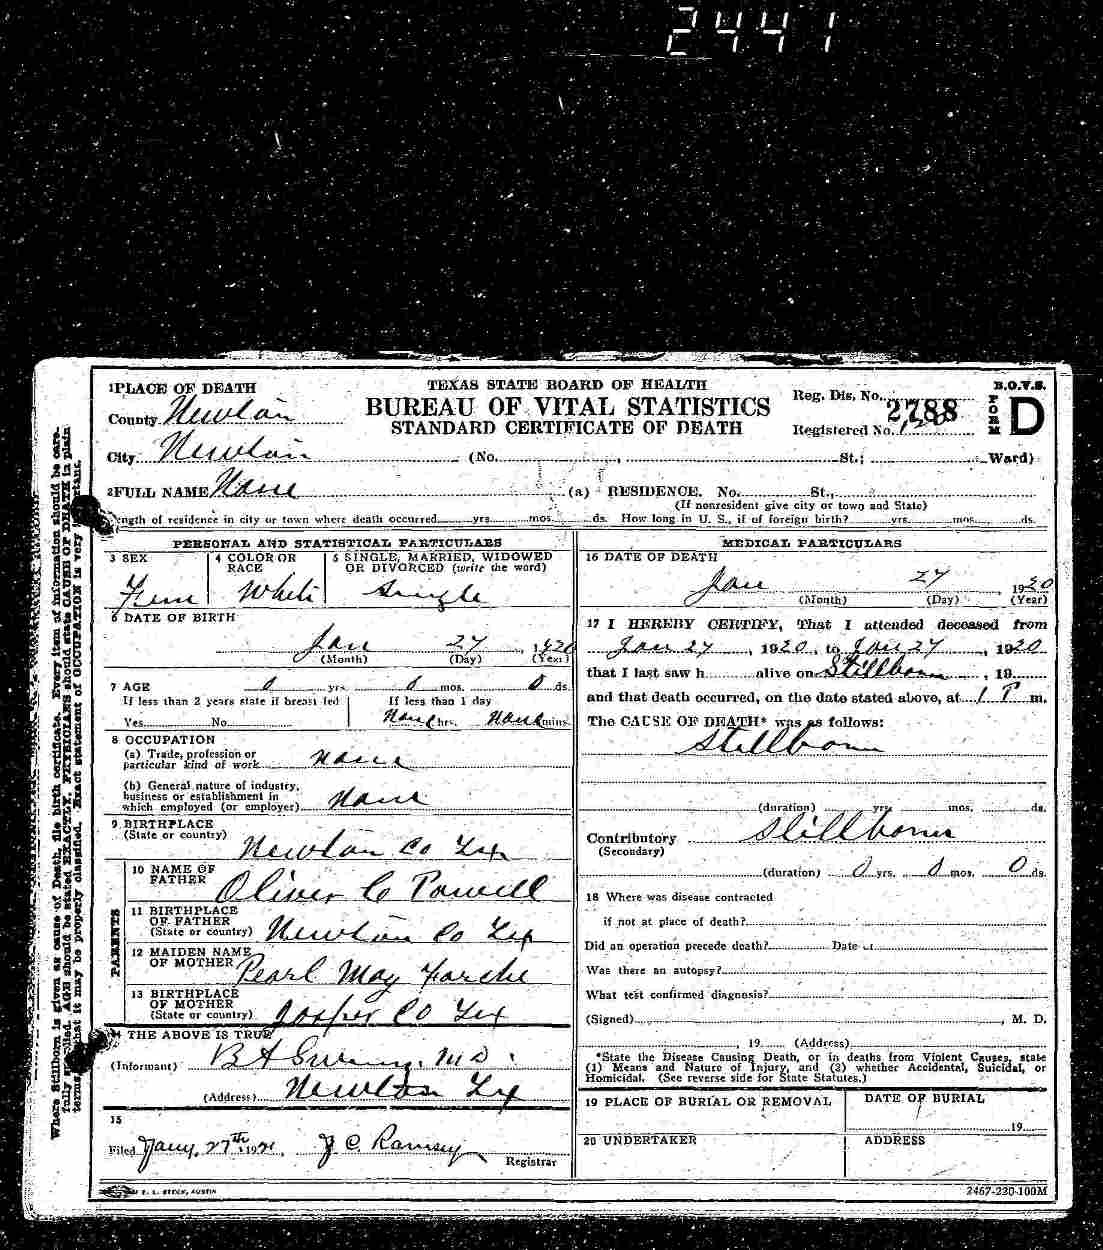 2441
1 PLACE OF DEATH
TEXAS STATE BOARD OF HEALTH
B.O.V.S.
County Newton
BUREAU OF VITAL STATISTICS
Reg. Dis. No.
2788
FORM D
STANDARD CERTIFICATE OF DEATH
Registered No.
City Newton (No. , St.; Ward)
2 FULL NAME None (a) RESIDENCE. No. St.,
(If nonresident give city or town and State)
Length of residence in city or town where death occurred yrs. mos. ds. How long in U. S., if of foreign birth? yrs. mos. ds.
PERSONAL AND STATISTICAL PARTICULARS
3 SEX
4 COLOR OR RACE
5 SINGLE, MARRIED, WIDOWED OR DIVORCED (write the word)
Fem White Single
6 DATE OF BIRTH
Jan 27, 1920
(Month) (Day) (Year)
7 AGE 0 yrs. 0 mos. 0 ds.
If less than 2 years state if breast fed
If less than 1 day
Yes No None hrs. None mins.
8 OCCUPATION
(a) Trade, profession or
particular kind of work None
(b) General nature of industry,
business or establishment in
which employed (or employer) None
9 BIRTHPLACE
(State or country) Newton Co Tex
PARENTS
10 NAME OF FATHER Oliver C Powell
11 BIRTHPLACE
OF FATHER
(State or country) Newton Co Tex
12 MAIDEN NAME
OF MOTHER Pearl May
13 BIRTHPLACE
OF MOTHER
(State or country) Jasper Co Tex
14 THE ABOVE IS TRUE
(Informant) B A M D.
(Address) Newton Tex
15
Filed Jany. 27th 192 J C Ramsey
Registrar
E. L. STECK, AUSTIN
MEDICAL PARTICULARS
16 DATE OF DEATH
Jan 27 1920
(Month) (Day) (Year)
17 I HEREBY CERTIFY, That I attended deceased from
Jan 27, 1920, to Jan 27, 1920
that I last saw h alive on Stillborn, 19
and that death occurred, on the date stated above, at 1 P m.
The CAUSE OF DEATH* was as follows:
Stillborn
(duration) yrs. mos. ds.
Contributory Stillborn
(Secondary)
(duration) 0 yrs. 0 mos. 0 ds.
18 Where was disease contracted
if not at place of death?
Did an operation precede death? Date of
Was there an autopsy?
What test confirmed diagnosis?
(Signed) , M. D.
, 19 (Address)
*State the Disease Causing Death, or in deaths from Violent Causes, state
(1) Means and Nature of Injury, and (2) whether Accidental, Suicidal, or
Homicidal. (See reverse side for State Statutes.)
19 PLACE OF BURIAL OR REMOVAL
DATE OF BURIAL
19
20 UNDERTAKER
ADDRESS
2467-220-100M
Where Stillborn is given as cause of Death, file birth certificate. Every item of information should be care-
fully supplied. AGE should be stated EXACTLY. PHYSICIANS should state CAUSE OF DEATH in plain
terms, that it may be properly classified. Exact statement of OCCUPATION is very important.